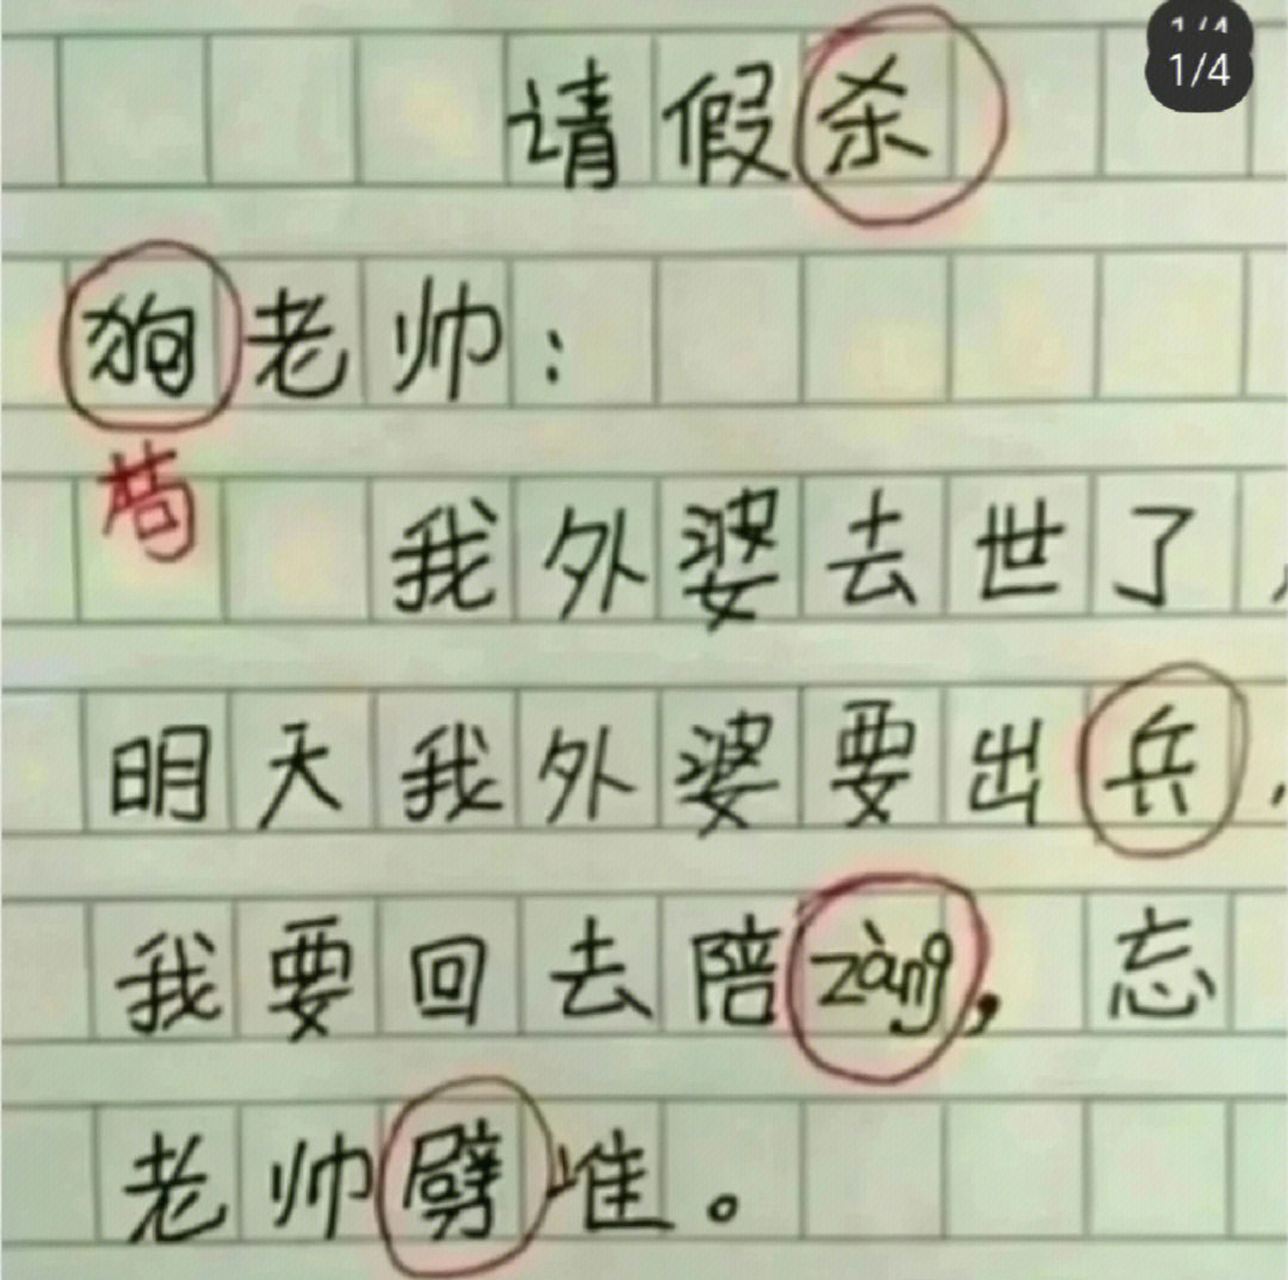 1/4
1/4
请假杀
狗老帅:
苟
我外婆去世了,
明天我外婆要出兵,
我要回去陪zàng, 忘
老帅劈准。